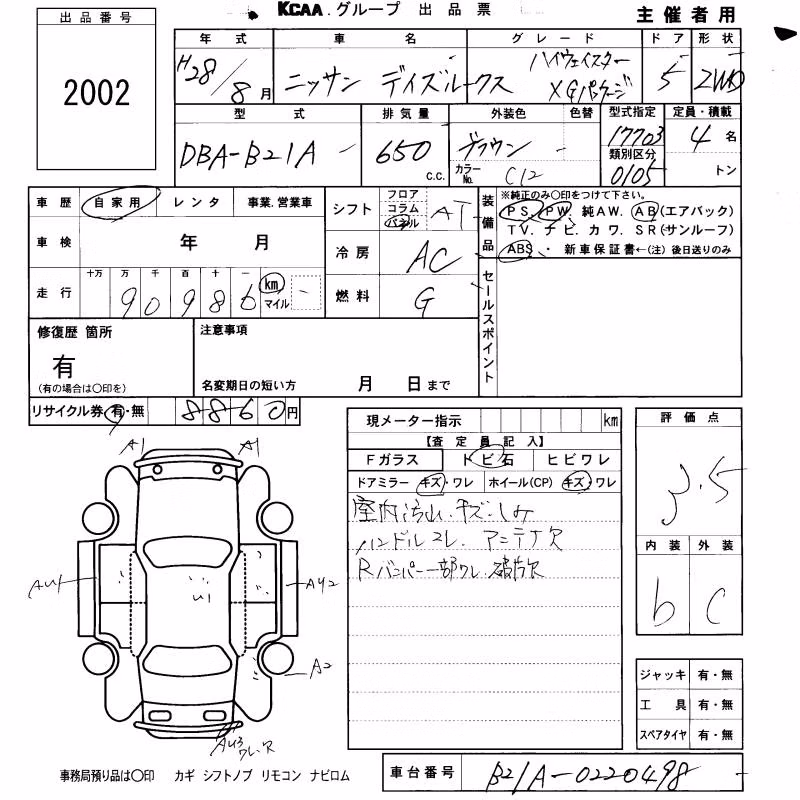 KCAA.グループ 出品票
主催者用
出品番号
2002
年式 車名 グレード ドア 形状
H28/8月 ニッサン デイズルークス ハイウェイスター XGパッケージ 5 2WD
型式 排気量 外装色 色替 型式指定 定員・積載
DBA-B21A - 650 c.c. ブラウン - 17703 4名
カラーNo. C12 類別区分 0105 トン
車歴 自家用 レンタ 事業.営業車
シフト フロア コラム パネル AT
装備品 ※純正のみ〇印をつけて下さい。
PS. PW. 純AW. AB(エアバック)
TV. ナビ. カワ. SR(サンルーフ)
ABS ・ 新車保証書←(注)後日送りのみ
車検 年 月
冷房 AC
走行 十万 万 千 百 十 一
90986 km マイル -
燃料 G
セールスポイント
修復歴 箇所
有
(有の場合は〇印を)
注意事項
名変期日の短い方 月 日まで
リサイクル券 有・無 8860円
現メーター指示 km
【査定員記入】
Fガラス トビ石 ヒビワレ
ドアミラー キズ・ワレ ホイール(CP) キズ・ワレ
室内汚れ.キズ.シミ
ハンドルコレ. アンテナ欠
Rバンパー一部ワレ.破片欠
評価点
3.5
内装 外装
b C
A1 A1
AU1 U1 AU2
A2
AU3 ワレ.欠
ジャッキ 有・無
工具 有・無
スペアタイヤ 有・無
事務局預り品は〇印 カギ シフトノブ リモコン ナビロム
車台番号 B21A-0220498